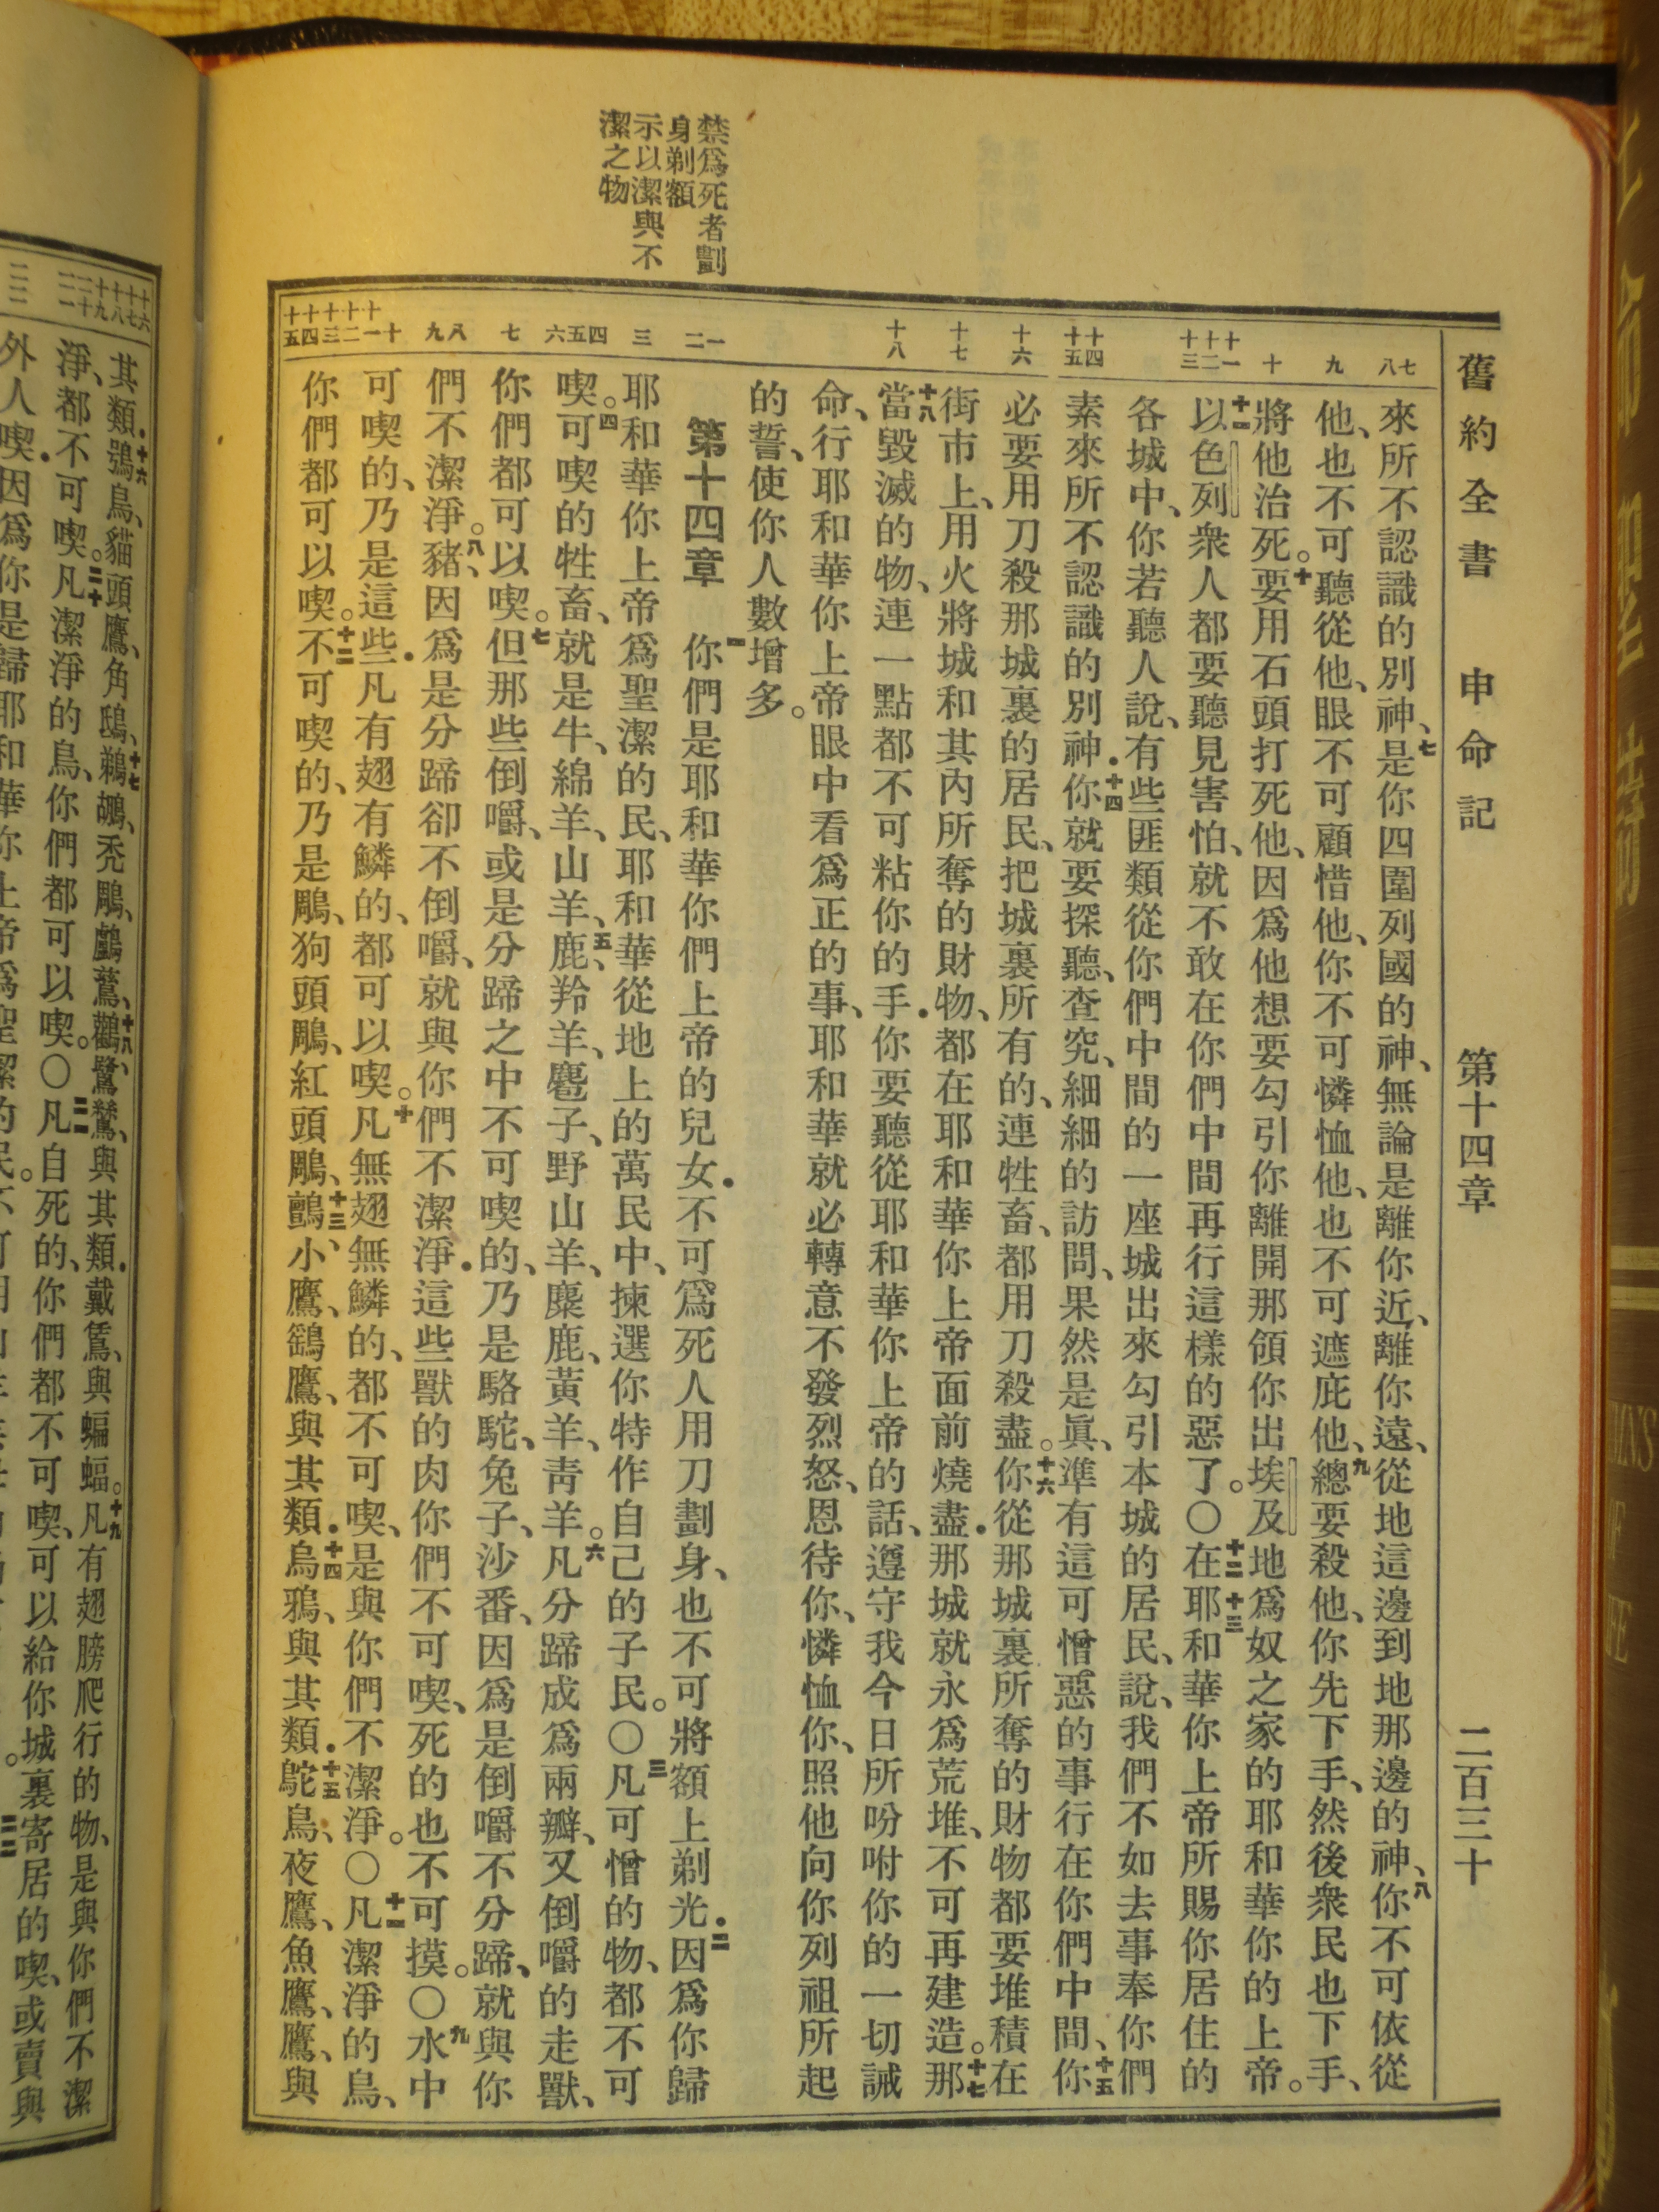 舊約全書 申命記 第十四章 二百三十
禁爲死者劃
身剃額
示以潔與不
潔之物
七 八
九
十
十一 十二 十三
十四 十五
十六
十七
十八
一 二
三
四 五 六
七
八 九
十 十一 十二 十三 十四 十五
來所不認識的別神、七是你四圍列國的神、無論是離你近、離你遠、從地這邊到地那邊的神、八你不可依從
他、也不可聽從他、眼不可顧惜他、你不可憐恤他、也不可遮庇他、九總要殺他、你先下手、然後衆民也下手、
將他治死。十要用石頭打死他、因爲他想要勾引你離開那領你出埃及地爲奴之家的耶和華你的上帝。
十一以色列衆人都要聽見害怕、就不敢在你們中間再行這樣的惡了。〇十二在十三耶和華你上帝所賜你居住的
各城中、你若聽人說、有些匪類從你們中間的一座城出來勾引本城的居民、說、我們不如去事奉你們
素來所不認識的別神．十四你就要探聽、查究、細細的訪問、果然是眞、準有這可憎惡的事行在你們中間、十五你
必要用刀殺那城裏的居民、把城裏所有的、連牲畜、都用刀殺盡。十六你從那城裏所奪的財物都要堆積在
街市上、用火將城和其內所奪的財物、都在耶和華你上帝面前燒盡．那城就永爲荒堆、不可再建造。十七那
十八當毀滅的物、連一點都不可粘你的手．你要聽從耶和華你上帝的話、遵守我今日所吩咐你的一切誡
命、行耶和華你上帝眼中看爲正的事、耶和華就必轉意不發烈怒、恩待你、憐恤你、照他向你列祖所起
的誓、使你人數增多。
第十四章 一你們是耶和華你們上帝的兒女．不可爲死人用刀劃身、也不可將額上剃光．二因爲你歸
耶和華你上帝爲聖潔的民、耶和華從地上的萬民中、揀選你特作自己的子民。〇三凡可憎的物、都不可
喫。四可喫的牲畜、就是牛、綿羊、山羊、五鹿、羚羊、麅子、野山羊、麋鹿、黃羊、靑羊。六凡分蹄成爲兩瓣、又倒嚼的走獸、
你們都可以喫。七但那些倒嚼、或是分蹄之中不可喫的、乃是駱駝、兔子、沙番、因爲是倒嚼不分蹄、就與你
們不潔淨。八豬、因爲是分蹄卻不倒嚼、就與你們不潔淨．這些獸的肉你們不可喫、死的也不可摸。〇九水中
可喫的、乃是這些．凡有翅有鱗的、都可以喫。十凡無翅無鱗的、都不可喫、是與你們不潔淨。〇十一凡潔淨的鳥、
你們都可以喫。十二不可喫的、乃是鵰、狗頭鵰、紅頭鵰、十三鸇、小鷹、鷂鷹、與其類．十四烏鴉、與其類．十五鴕鳥、夜鷹、魚鷹、鷹、與
十六 十七 十八 十九 二十 二一
二二
其類．十六鴞鳥、貓頭鷹、角鴟、十七鵜鶘、禿鵰、鸕鶿、十八鸛、鷺鷥、與其類．戴鵀、與蝙蝠。十九凡有翅膀爬行的物、是與你們不潔
淨、都不可喫。二十凡潔淨的鳥、你們都可以喫。〇二一凡自死的、你們都不可喫、可以給你城裏寄居的喫、或賣與
外人喫．因爲你是歸耶和華你上帝爲聖潔的民。